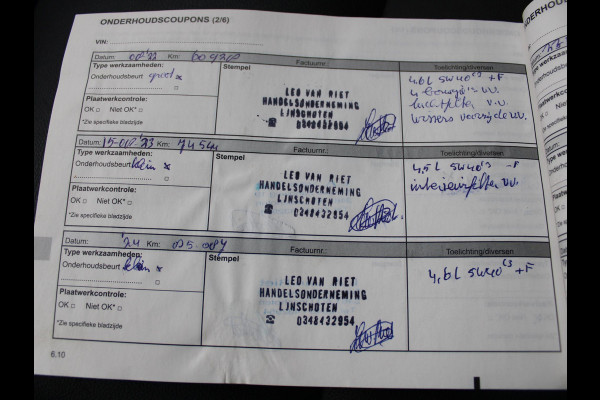 ONDERHOUDSCOUPONS (2/6)
VIN:
Datum: Km:
Factuurnr.:
Toelichting/diversen
Type werkzaamheden:
Onderhoudsbeurt groot x
Stempel
Plaatwerkcontrole:
OK □ Niet OK* □
*Zie specifieke bladzijde
LEO VAN RIET
HANDELSONDERNEMING
LINSCHOTEN
☎ 0348432954
4,6L 5W40 C3 + F
4 bougies v.v.
luchtfilter v.v.
wissers voorzijde v.v.
Datum: Km:
Factuurnr.:
Toelichting/diversen
Type werkzaamheden:
Onderhoudsbeurt klein x
Stempel
Plaatwerkcontrole:
OK □ Niet OK* □
*Zie specifieke bladzijde
LEO VAN RIET
HANDELSONDERNEMING
LINSCHOTEN
☎ 0348432954
4,5L 5W40 C3 + F
interieurfilter v.v.
Datum: '24 Km:
Factuurnr.:
Toelichting/diversen
Type werkzaamheden:
Onderhoudsbeurt klein x
Stempel
Plaatwerkcontrole:
OK □ Niet OK* □
*Zie specifieke bladzijde
LEO VAN RIET
HANDELSONDERNEMING
LINSCHOTEN
☎ 0348432954
4,6L 5W40 C3 + F
6.10